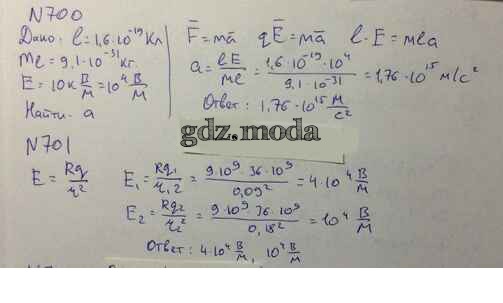 N700
Дано: l=1,6·10⁻¹⁹ Кл
me = 9,1·10⁻³¹ кг.
E = 10к В/м = 10⁴ В/м
Найти: a
F̄ = mā  qĒ = mā  l·E = mea
a = lE/me = 1,6·10⁻¹⁹·10⁴/9,1·10⁻³¹ = 1,76·10¹⁵ м/с²
Ответ: 1,76·10¹⁵ м/с²
gdz.moda
N701
E = Rq/r²  E₁ = Rq₁/r₁2 = 9·10⁹·36·10⁹/0,09² = 4·10⁴ В/м
E₂ = Rq₂/r₂² = 9·10⁹·36·10⁹/0,18² = 10⁴ В/м
Ответ: 4·10⁴ В/м, 10⁴ В/м